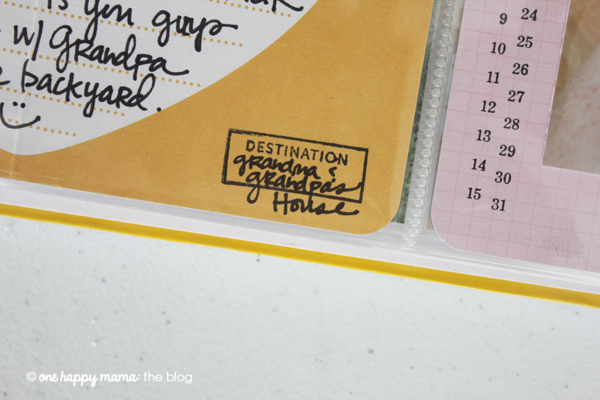 is you guys
w/ grandpa
backyard.
DESTINATION
grandma &
grandpa's
House
9 24
10 25
11 26
12 27
13 28
14 29
15 30
31
© one happy mama: the blog